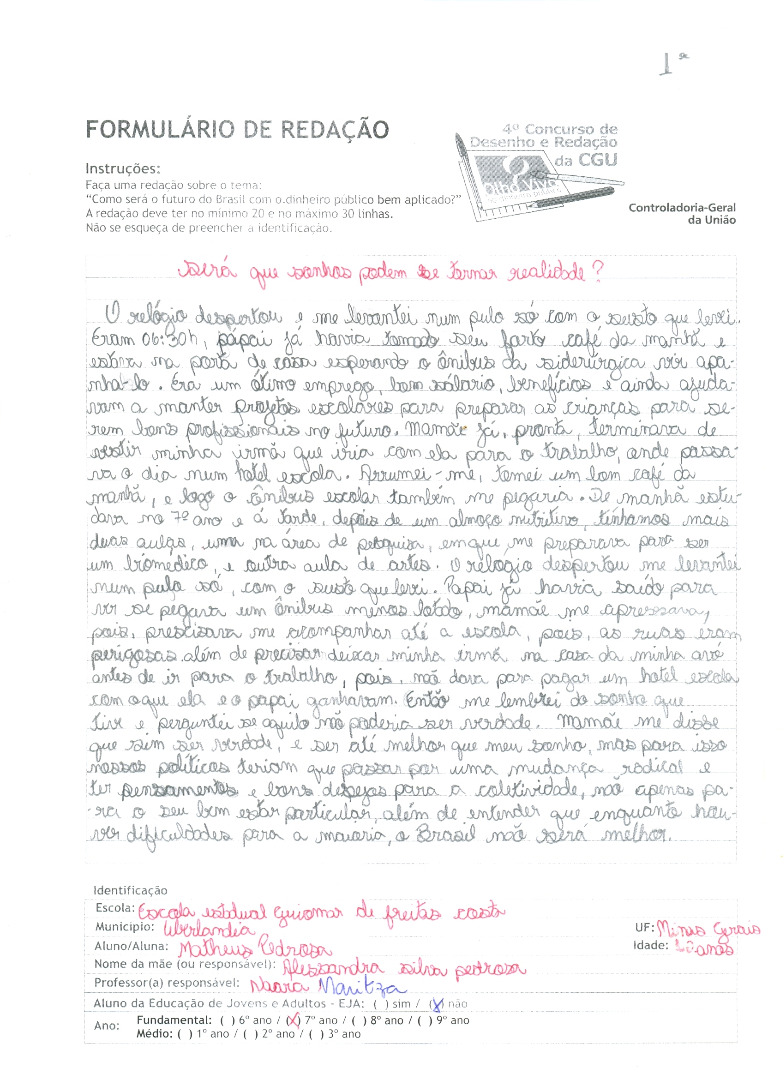 1ª
FORMULÁRIO DE REDAÇÃO
4º Concurso de
Desenho e Redação
da CGU
Olho Vivo
Controladoria-Geral
da União
Instruções:
Faça uma redação sobre o tema:
"Como será o futuro do Brasil com o dinheiro público bem aplicado?"
A redação deve ter no mínimo 20 e no máximo 30 linhas.
Não se esqueça de preencher a identificação.
Será que sonhos podem se tornar realidade?
O relógio despertou e me levantei num pulo só com o susto que levei.
Eram 06:30h, papai já havia tomado seu farto café da manhã e
estava na porta de casa esperando o ônibus da siderúrgica vir apa-
nhá-lo. Era um ótimo emprego, bom sálario, benefícios e ainda ajuda-
vam a manter projetos escolares para preparar as crianças para se-
rem bons profissionais no futuro. Mamãe já, pronta, terminara de
vestir minha irmã que iria com ela para o trabalho, onde passa-
va o dia num hotel escola. Arrumei-me, tomei um bom café da
manhã, e logo o ônibus escolar também me pegaria. De manhã estu-
dava no 7º ano e á tarde, depois de um almoço nutritivo, tínhamos mais
duas aulas, uma na área de pesquisa, em que, me preparava para ser
um biomédico, e outra aula de artes. O relogio despertou me levantei
num pulo só, com o susto que levei. Papai já havia saído para
vir se pegava um ônibus menos lotado, mamãe me apressava,
pois, prescisava me acompanhar até a escola, pois, as ruas eram
perigosas além de precisar deixar minha irmã na casa da minha avó
antes de ir para o trabalho, pois, não dava para pagar um hotel escola
com o que ela e o papai ganhavam. Então me lembrei do sonho que
tive e perguntei se aquilo não poderia ser verdade. Mamãe me disse
que sim ser verdade, e ser até melhor que meu sonho, mas para isso
nossos políticos teriam que passar por uma mudança radical e
ter pensamentos e bons desejos para a coletividade, não apenas pa-
ra o seu bem estar particular, além de entender que enquanto hou-
ver dificuldades para a maioria, o Brasil não será melhor.
Identificação
Escola: Escola estadual Guiomar de freitas costa
Município: Uberlandia UF: Minas Gerais
Aluno/Aluna: Matheus Pedrosa Idade: anos
Nome da mãe (ou responsável): Alessandra silva pedrosa
Professor(a) responsável: Naara Maritza
Aluno da Educação de Jovens e Adultos - EJA: ( ) sim / (x) não
Ano: Fundamental: ( ) 6º ano / (x) 7º ano / ( ) 8º ano / ( ) 9º ano
Médio: ( ) 1º ano / ( ) 2º ano / ( ) 3º ano